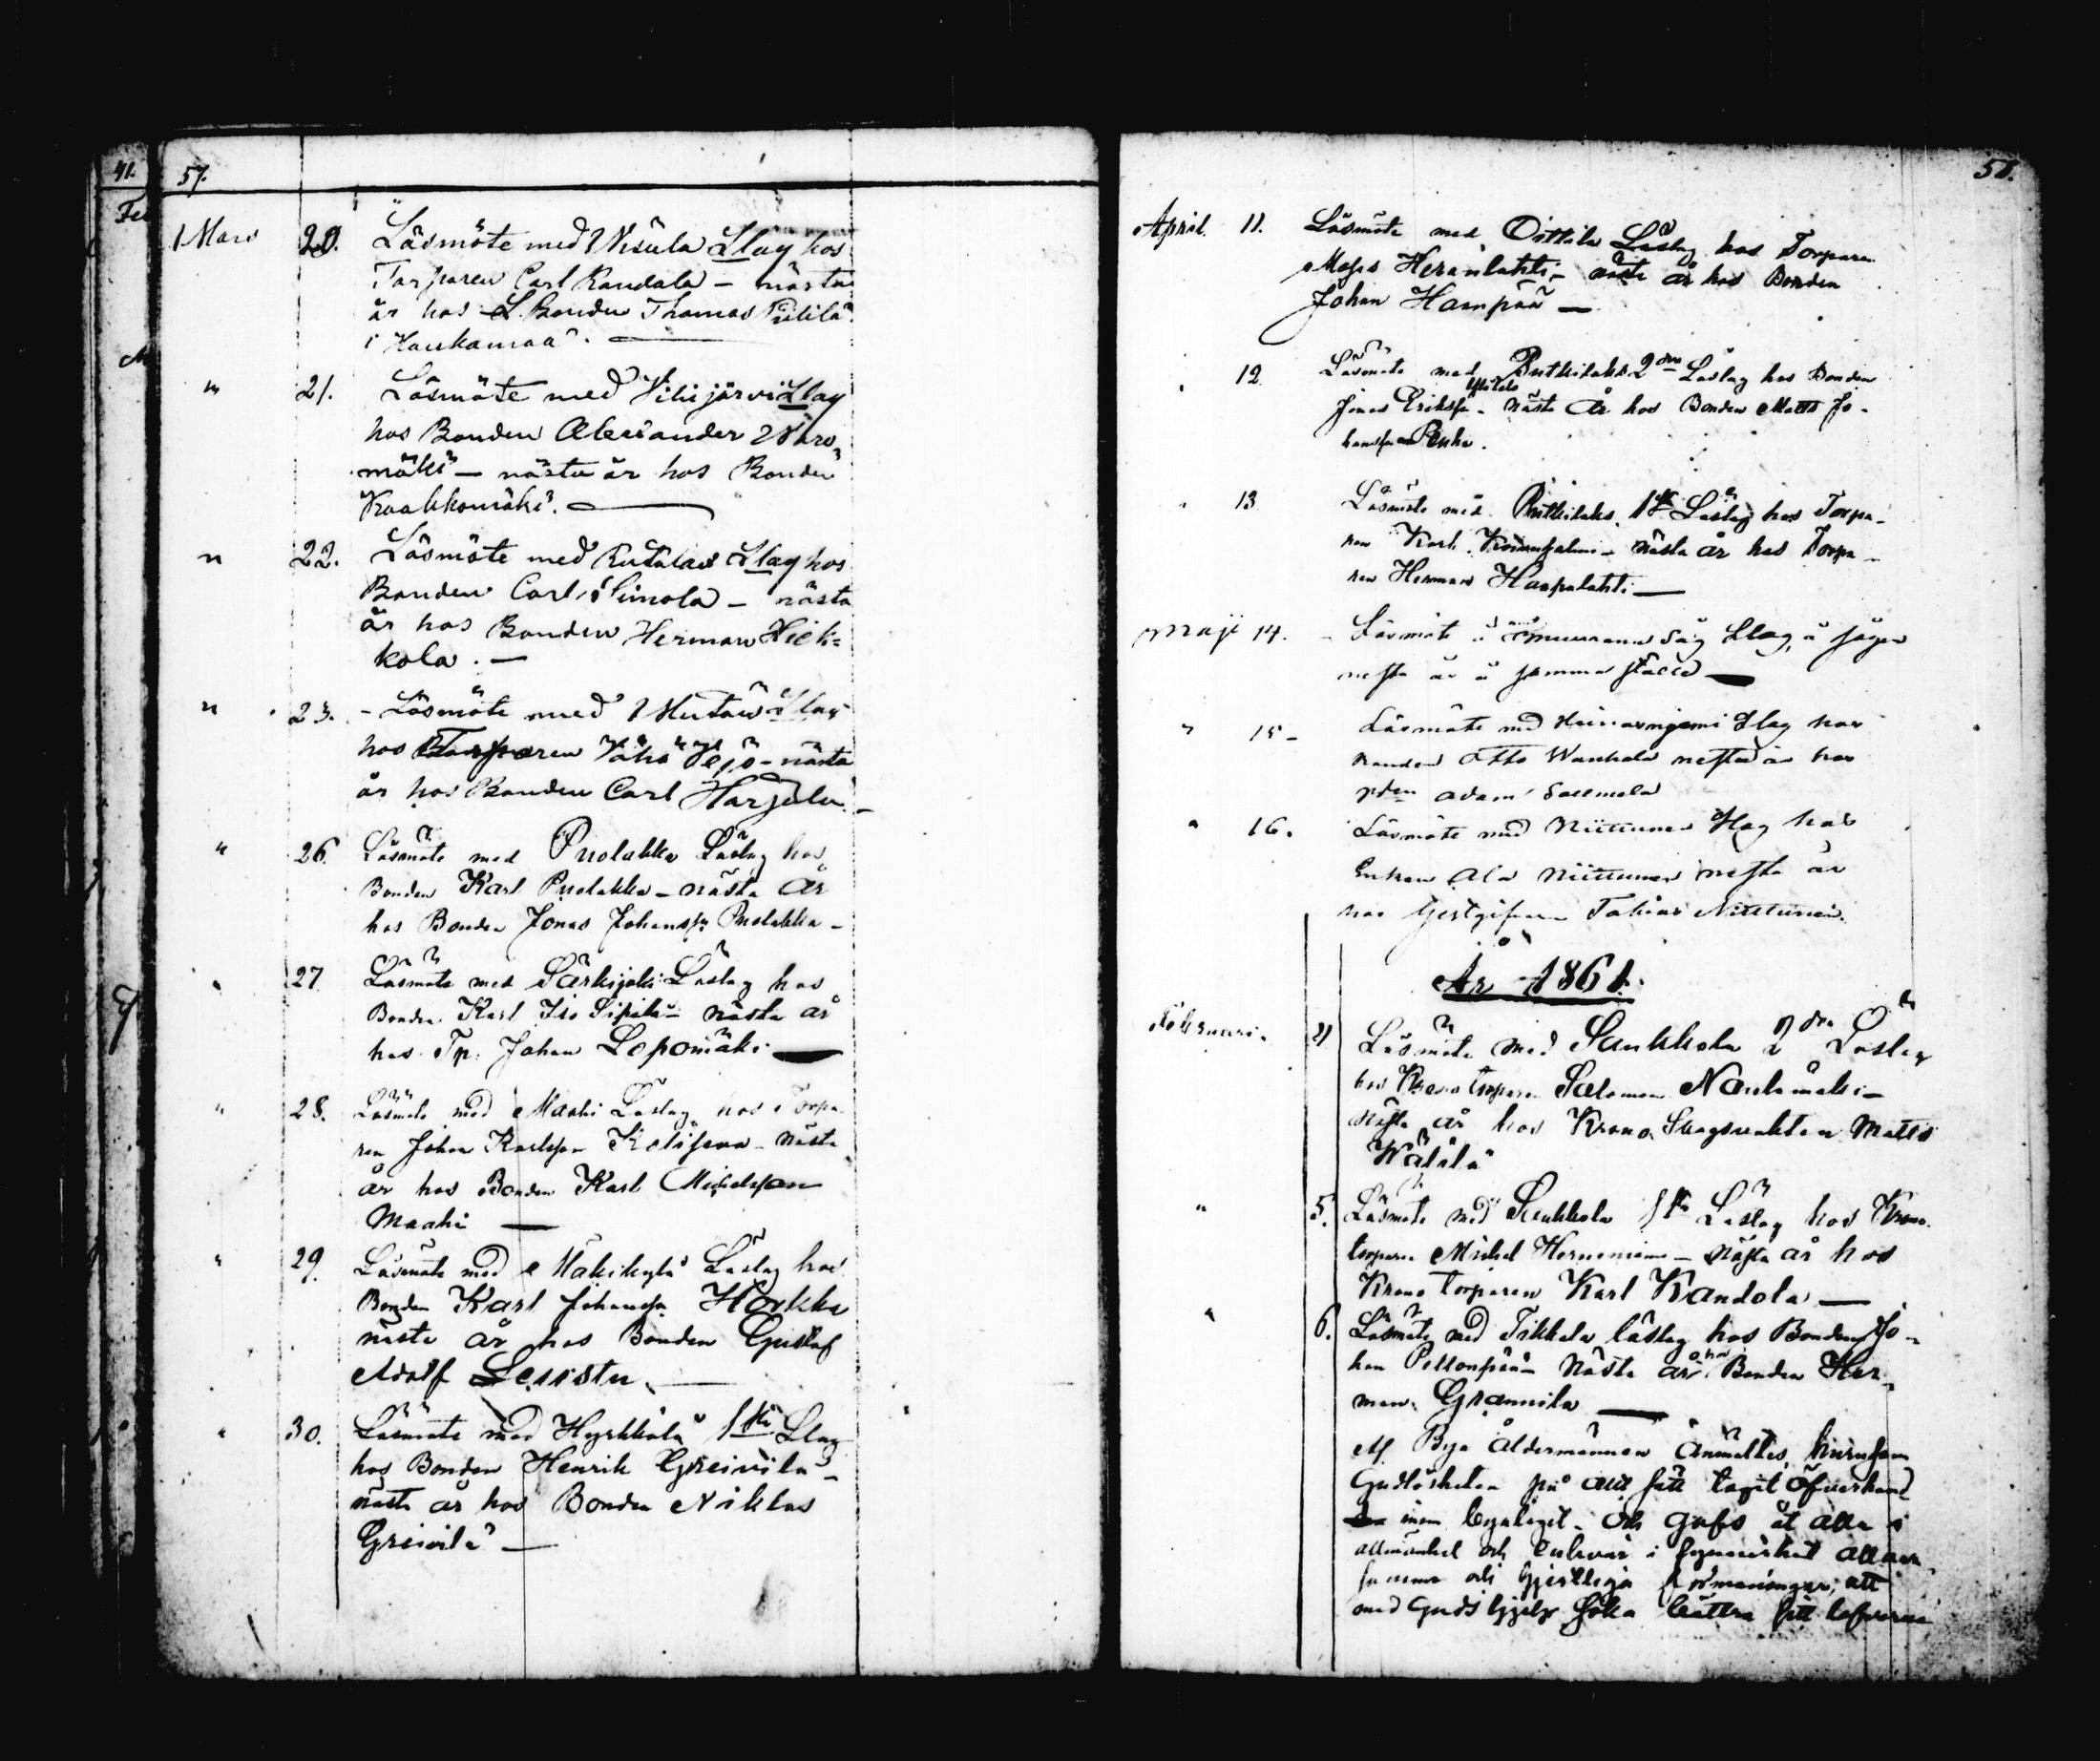 41.
57.
Mars 20. Läsmöte med Nisula Llag hos
Torparen Carl Kandola – nästa
år hos L. Bonden Thomas Piilila
i Haukamaa. —
" 21. Läsmöte med Vihijärvi Llag
hos Bonden Alexander
mäki – nästa år hos Bonden
Kaakkomäki. —
" 22. Läsmöte med Llag hos
Bonden Carl Simola – nästa
år hos Bonden Herman Hick=
kola. —
" 23. – Läsmöte med Llag
hos Torparen Vähä – nästa
år hos Bonden Carl Harjula. –
" 26. Läsmöte med Puolakka Läslag hos
Bonden Karl Puolakka – nästa År
hos Bonden Jonas Johansson Puolakka –
" 27 Läsmöte med Särkijoki Läslag hos
Bonden Karl Iso Sipilä – nästa år
hos Tp. Johan Lepomäki —
" 28. Läsmöte med Maaki Läslag hos Torpa-
ren Johan Karlsson – Nästa
år hos Bonden Karl Michelsson
Maaki —
" 29. Läsmöte med Mäkikylä Läslag hos
Bonden Karl Johansson Horkka
nästa år hos Bonden Gustaf
Adolf —
" 30. Läsmöte med Hyrkkölä 1sta Llag
hos Bonden Henrik Greivilä –
nästa år hos Bonden Niklas
Greivilä —
58.
April. 11. Läsmöte med Oittila Läslag hos Torparen
Moses Heranlahti – nästa år hos Bonden
Johan Haanpää —
" 12 Läsmöte med Putkilaks 2dra Läslag hos Bonden
Jonas Eriksson – Nästa År hos Bonden Matts Jo-
hansson Penha.
" 13 Läsmöte med Putkilaks. 1sta Läslag hos Torpa-
ren Karl – Nästa År hos Torpa-
ren Herman Haapalahti —
Maji 14. – Läsmöte med såg Llag, å sågen
nesta år å samma ställe —
" 15 – Läsmöte med Heinasniemi Llag hos
Bonden Otto Wanhala nesta år hos
Adam Salmela
" 16. Läsmöte med Niittunen Llag hos
Enkan Ala Niittunen nesta år
hos Gestgifvaren Tobias Niittunen.
År 1861.
Februari. 4 Läsmöte med Saukkola 2dra Läslag
hos Kronotorparen Salomon
Nästa år hos Krono Skogsvakten Matts
Wälilä
" 5. Läsmöte med Saukkola 1sta Läslag hos Krono-
torparen Michel Hernoniemi – Nästa år hos
Krono torparen Karl Kandola —
" 6. Läsmöte med Tikkala läslag hos Bonden Jo-
han Pellonpää – Nästa år hos Bonden Her-
man Grannila —
Af Bya Åldermännen Anmältes, hurusom
Gudlösheten på allt sätt tagit öfverhand
inom byalaget. och gafs åt alla i
allmänhet och enhvar i synnerhet allvar-
samma och hjertliga förmaningar, att
med Guds hjelp söka bättra sitt lefverne